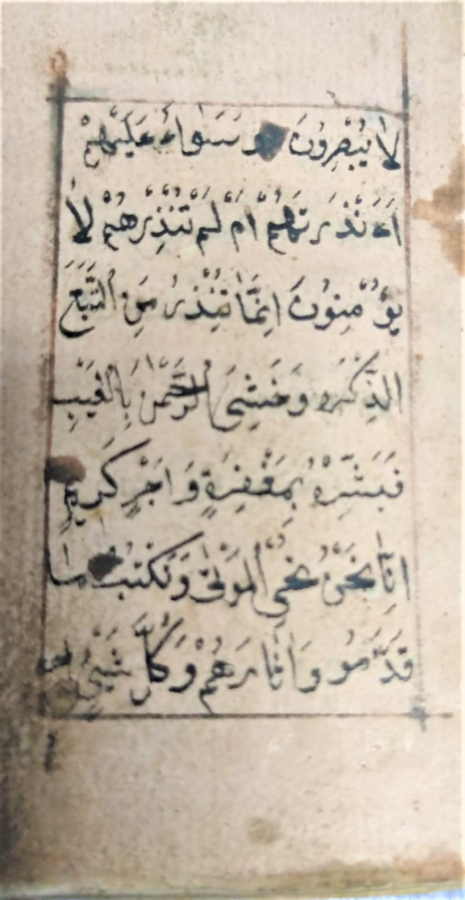 لَا يُبْصِرُونَ وَسَوَاءٌ عَلَيْهِمْ
ءَاَنْذَرْتَهُمْ اَمْ لَمْ تُنْذِرْهُمْ لَا
يُؤْمِنُونَ اِنَّمَا تُنْذِرُ مَنِ اتَّبَعَ
الذِّكْرَ وَخَشِىَ الرَّحْمٰنَ بِالْغَيْبِ
فَبَشِّرْهُ بِمَغْفِرَةٍ وَاَجْرٍ كَرِيمٍ
اِنَّا نَحْنُ نُحْىِ الْمَوْتٰى وَنَكْتُبُ مَا
قَدَّمُو وَاٰثَارَهُمْ وَكُلَّ شَيْءٍ